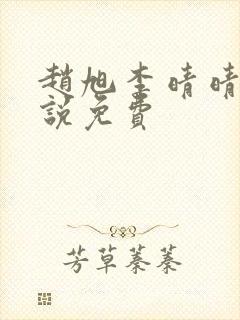 趙旭李晴晴
說免費
芳草蓁蓁